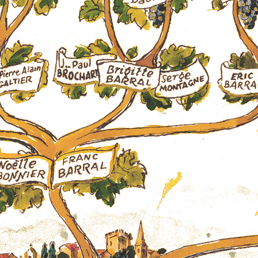 Pierre Alain
GALTIER
Paul
BROCHART
Brigitte
BARRAL
Serge
MONTAGNE
ERIC
BARRA
Noëlle
BONNIER
FRANC
BARRAL